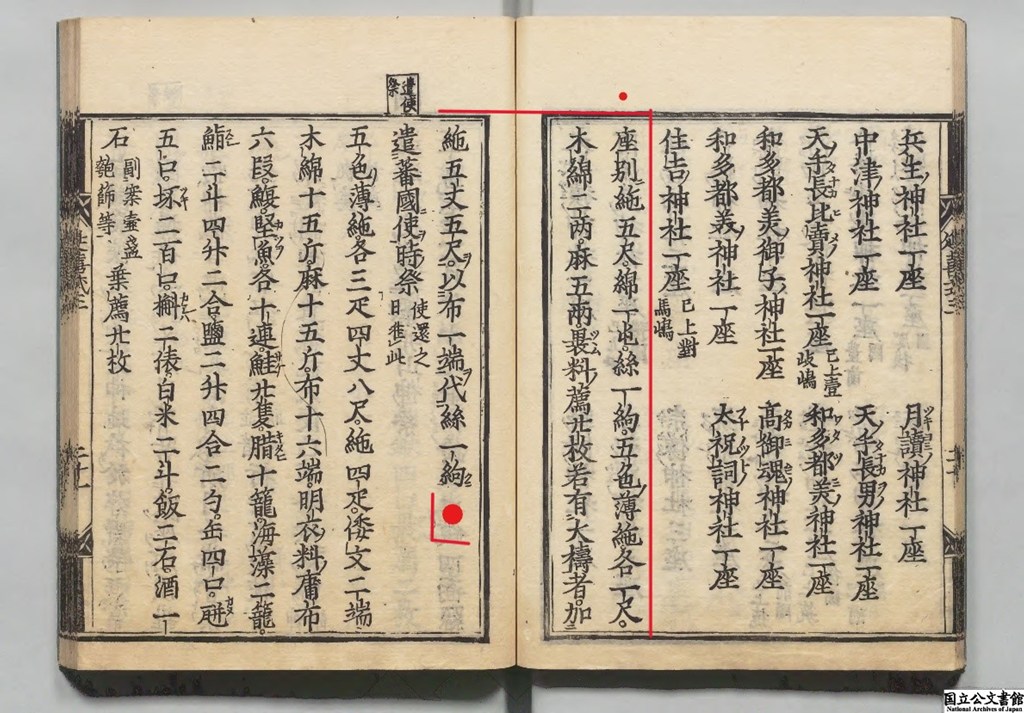 兵主神社一座 月讀神社一座
中津神社一座 天手長男神社一座
天手長比賣神社一座 已上壹岐嶋 和多都美神社一座
和多都美御子神社一座 高御魂神社一座
和多都美神社一座 太祝詞神社一座
住吉神社一座 已上對馬嶋
座別絁五尺。綿一屯。絲一絇。五色薄絁各一尺。
木綿二两。麻五两。褁料薦廿枚。若有大禱者。加
絁五丈五尺。以布一端代絲一絇。
遣使祭
遣蕃國使時祭 使還之日准此
五色薄絁各三疋四丈八尺。絁四疋。倭文二端
木綿十五斤。麻十五斤。布十六端。明衣料庸布
六段。鰒堅魚各十連。鮭廿隻。腊十籠。海藻二籠。
鮨二斗四升二合。鹽二升四合二勺。缶四口。瓶
五口。坏二百口。槲二俵。白米二斗。飯二石。酒一
石 副案壺盞匏篩等 葉薦廿枚
延喜式三
二十一
国立公文書館
National Archives of Japan